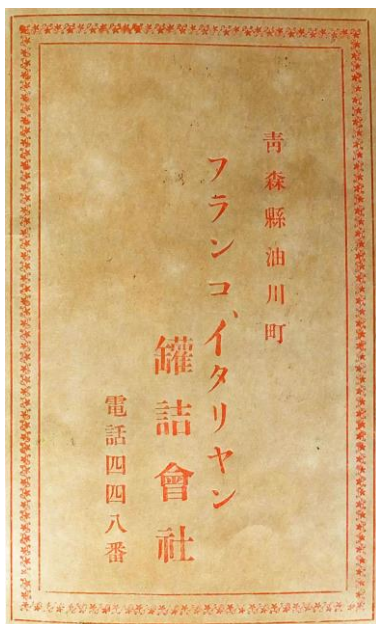 青森縣油川町
フランコ、イタリヤン
罐詰會社
電話四四八番